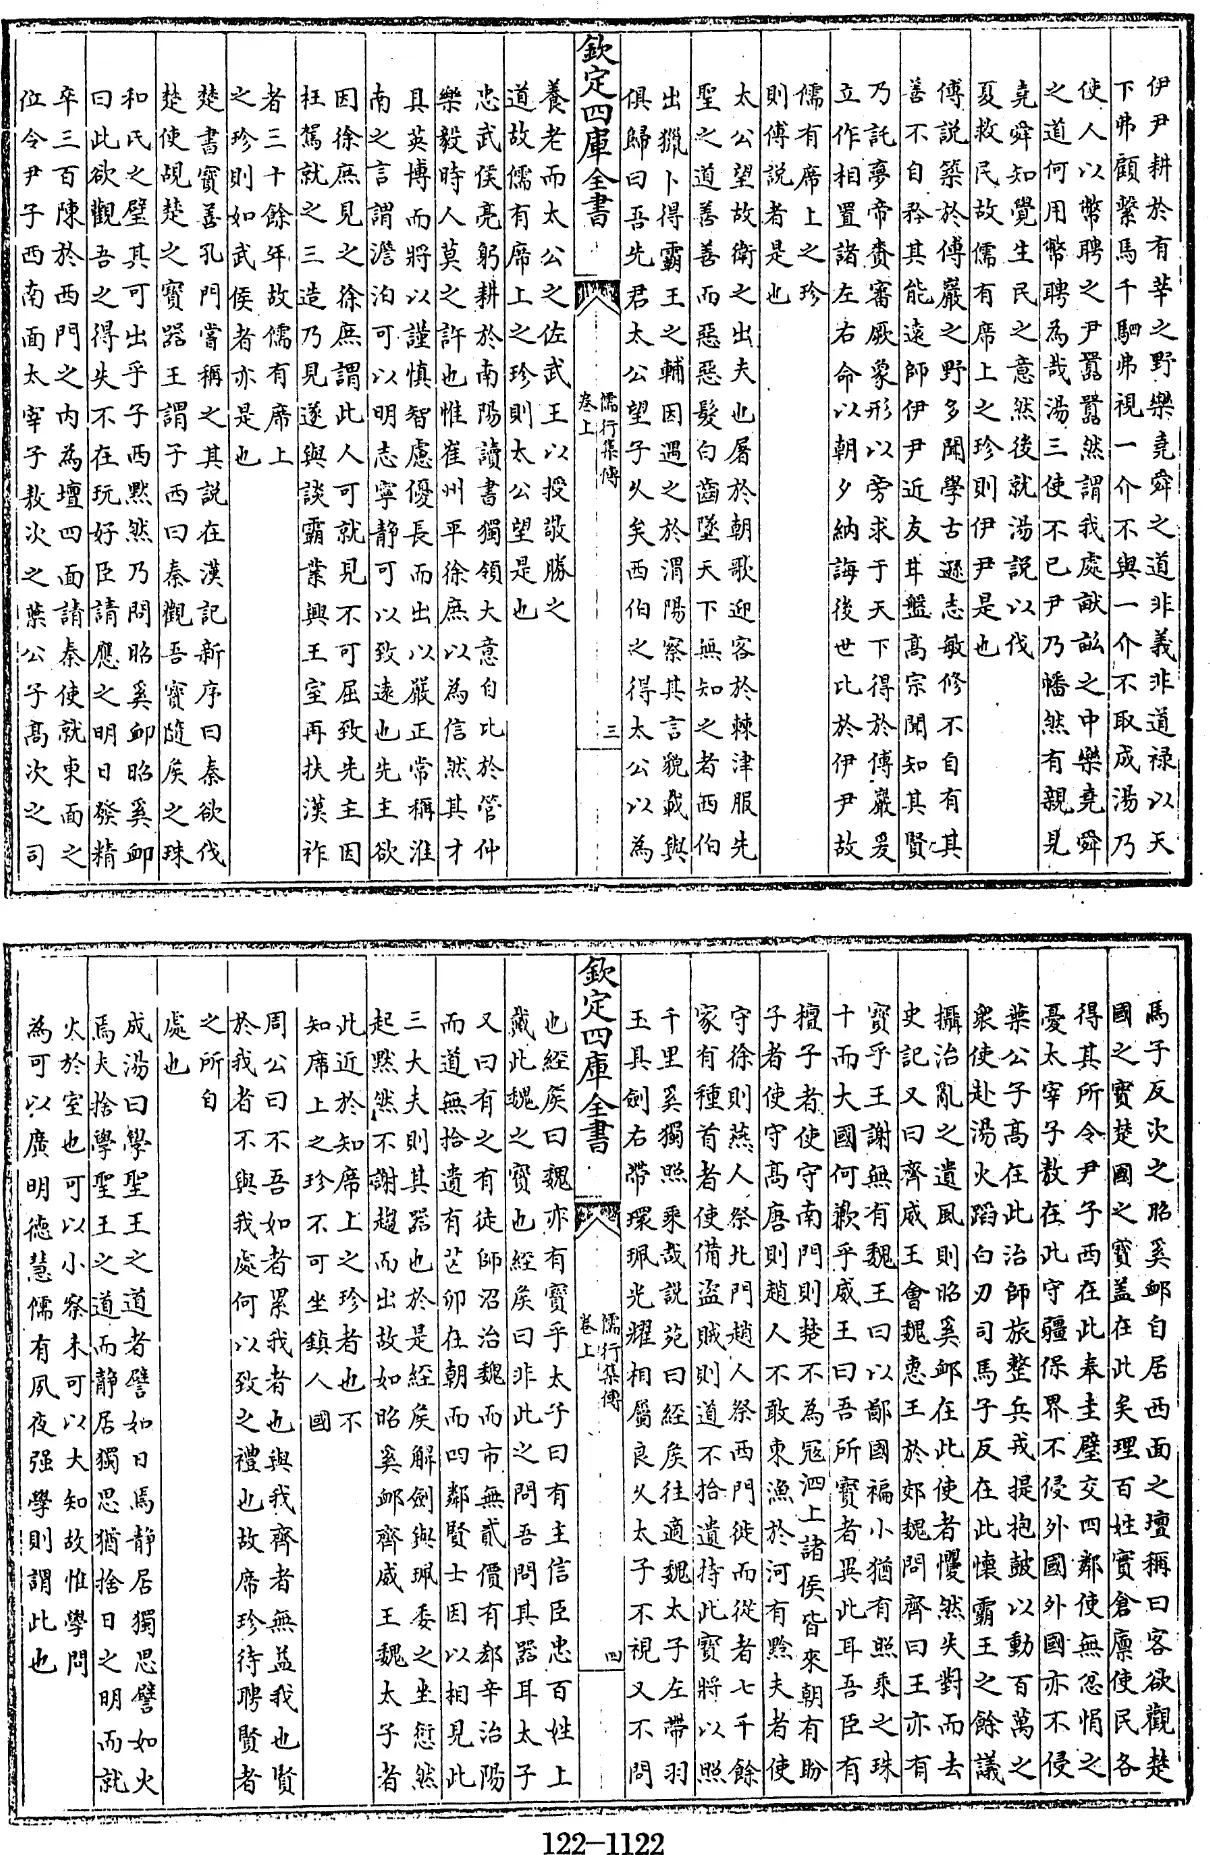 伊尹耕於有莘之野樂堯舜之道非義非道禄以天
下弗顧繫馬千駟弗視一介不與一介不取成湯乃
使人以幣聘之尹囂囂然謂我處畎畝之中樂堯舜
之道何用幣聘為哉湯三使不已尹乃幡然有親見
堯舜知覺生民之意然後就湯説以伐
夏救民故儒有席上之珍則伊尹是也
傅説築於傅巖之野多聞學古遜志敏修不自有其
善不自矜其能遠師伊尹近友甘盤高宗聞知其賢
乃託夢帝賚審厥象形以旁求于天下得於傅巖爰
立作相置諸左右命以朝夕納誨後世比於伊尹故
儒有席上之珍
則傅説者是也
太公望故衛之出夫也屠於朝歌迎客於棘津服先
聖之道善善而惡惡髮白齒墜天下無知之者西伯
出獵卜得霸王之輔因遇之於渭陽察其言貌載與
俱歸曰吾先君太公望子久矣西伯之得太公以為
欽定四庫全書
儒行集傳
卷上
三
養老而太公之佐武王以授敬勝之
道故儒有席上之珍則太公望是也
忠武侯亮躬耕於南陽讀書獨領大意自比於管仲
樂毅時人莫之許也惟崔州平徐庶以為信然其才
具英博而將以謹慎智慮優長而出以嚴正常稱淮
南之言謂澹泊可以明志寧静可以致遠也先主欲
因徐庶見之徐庶謂此人可就見不可屈致先主因
枉駕就之三造乃見遂與談霸業興王室再扶漢祚
者三十餘年故儒有席上
之珍則如武侯者亦是也
楚書寳善孔門嘗稱之其説在漢記新序曰秦欲伐
楚使覘楚之寳器王謂子西曰秦觀吾寳隨侯之珠
和氏之璧其可出乎子西黙然乃問昭奚卹昭奚卹
曰此欲觀吾之得失不在玩好臣請應之明日發精
卒三百陳於西門之内為壇四面請秦使就東面之
位令尹子西南面太宰子敖次之葉公子髙次之司
馬子反次之昭奚卹自居西面之壇稱曰客欲觀楚
國之寳楚國之寳盖在此矣理百姓實倉廪使民各
得其所令尹子西在此奉圭璧交四鄰使無忿悁之
憂太宰子敖在此守疆保界不侵外國外國亦不侵
葉公子髙在此治師旅整兵戎提抱鼓以動百萬之
衆使赴湯火蹈白刃司馬子反在此懷霸王之餘議
攝治亂之遺風則昭奚卹在此使者懼然失對而去
史記又曰齊威王會魏惠王於郊魏問齊曰王亦有
寳乎王謝無有魏王曰以鄙國褊小猶有照乘之珠
十而大國何歉乎威王曰吾所寳者異此耳吾臣有
檀子者使守南門則楚不為冦泗上諸侯皆來朝有盼
子者使守髙唐則趙人不敢東漁於河有黔夫者使
守徐則燕人祭北門趙人祭西門徙而從者七千餘
家有種首者使備盗賊則道不拾遺持此寳將以照
千里奚獨照乘哉説苑曰經侯往適魏太子左帶羽
玉具劍右帶環珮光耀相屬良久太子不視又不問
欽定四庫全書
儒行集傳
卷上
四
也經侯曰魏亦有寳乎太子曰有主信臣忠百姓上
戴此魏之寳也經侯曰非此之問吾問其器耳太子
又曰有之有徒師沼治魏而市無貳價有郄辛治陽
而道無拾遺有芒卯在朝而四鄰賢士因以相見此
三大夫則其器也於是經侯解劍與珮委之坐愆然
起黙然不謝趨而出故如昭奚卹齊威王魏太子者
此近於知席上之珍者也不
知席上之珍不可坐鎮人國
周公曰不吾如者累我者也與我齊者無益我也賢
於我者不與我處何以致之禮也故席珍待聘賢者
之所自
處也
成湯曰學聖王之道者譬如日焉静居獨思譬如火
焉夫捨學聖王之道而静居獨思猶捨日之明而就
火於室也可以小察未可以大知故惟學問
為可以廣明德慧儒有夙夜强學則謂此也
122-1122